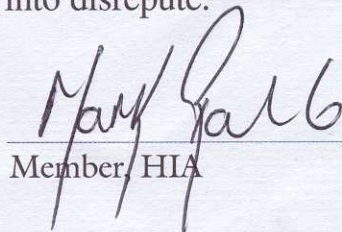 into disrepute.
Mark
Member, HIA